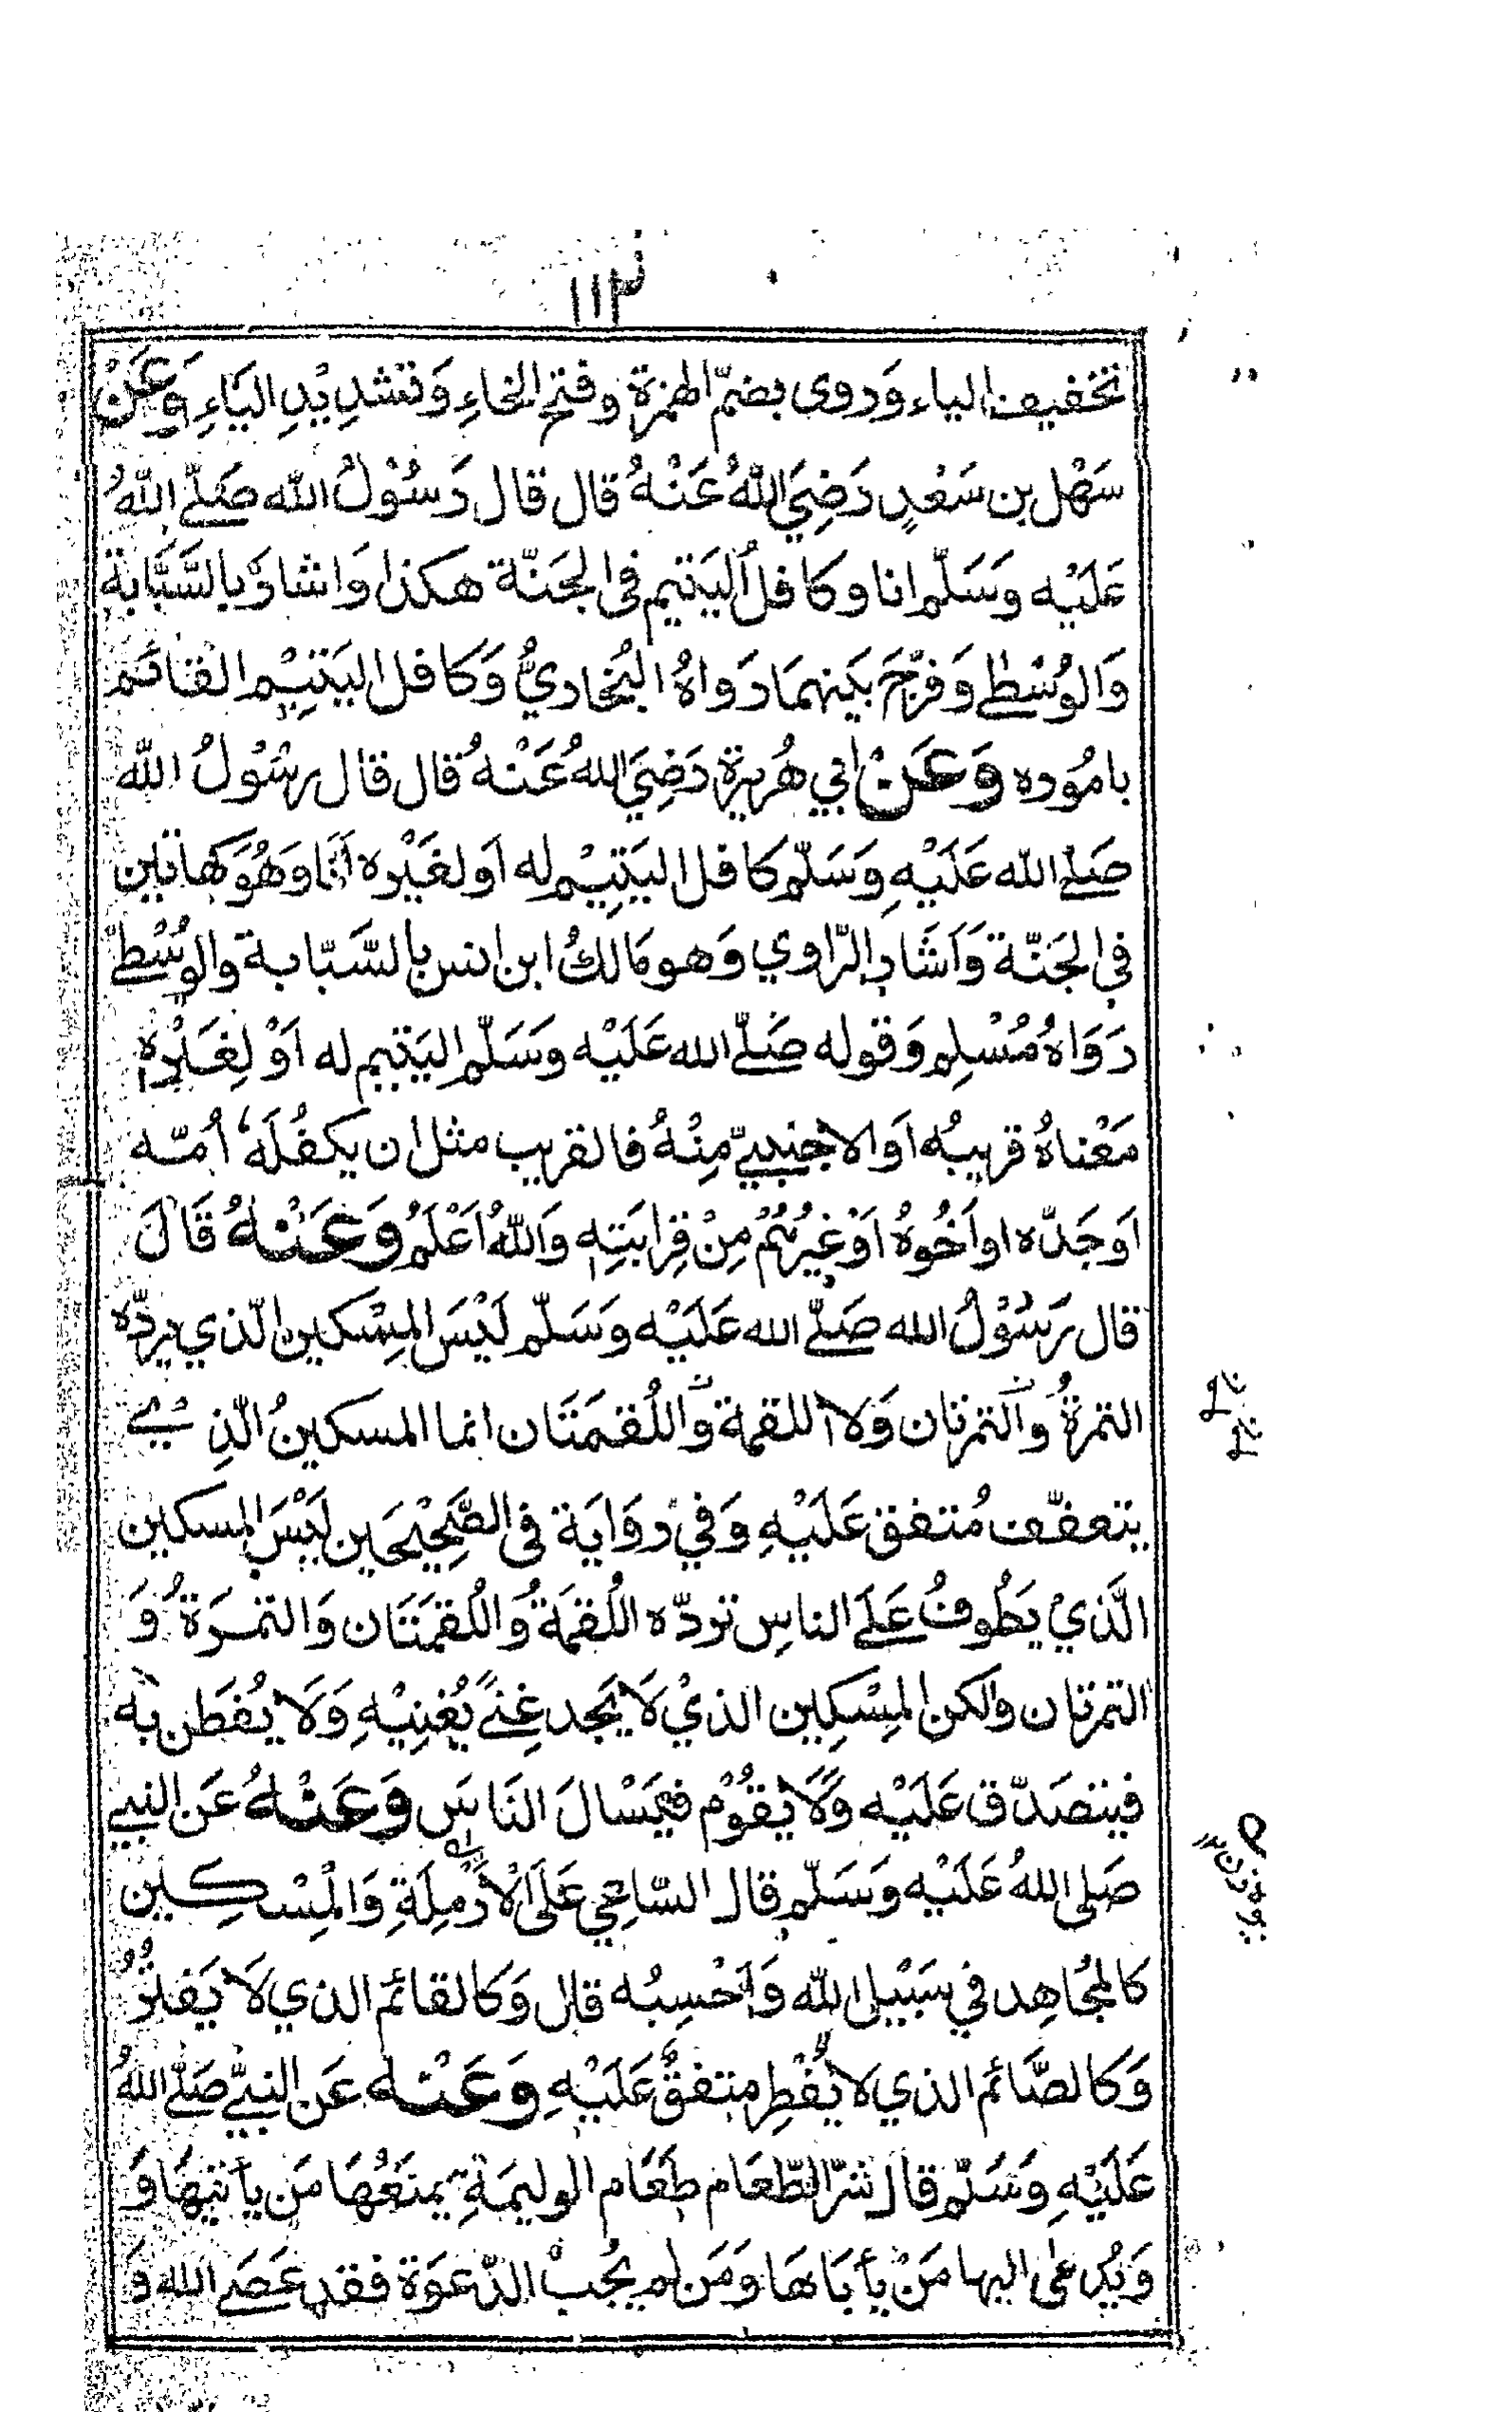 ١١٣
تخفيف الياء وَروى بضمّ الهمزة وفتح الخاءِ وَتشدِيْدِ اليَاءِ وَعَنْ
سَهْل بن سَعْدٍ رَضِيَ اللهُ عَنْهُ قال قال رَسُوْلُ الله صَلّے اللهُ
عَلَيْه وَسَلّم انا وكافلُ اليَتيم فى الجَنّة هكذا وَاشاوَ بالسَّبَّابة
وَالوُسْطٰے وَفرّجَ بَينهمَا رَوَاهُ البُخاريُّ وَكافل اليَتِيْم القائم
بامُوره وَعَنْ ابي هُريرة رَضِيَ اللهُ عَنْهُ قال قال رسُوْلُ الله
صَلّے الله عَلَيْهِ وَسَلّم كافل اليَتِيْم له اَو لغَيْره اَنَا وَهُوَ كهاتين
في الجَنّة وَاَشَار الرّاوي وَهو مَالكُ ابن انس بالسَّبّابة والوسْطٰے
رَوَاهُ مُسْلِم وَقوله صَلّے الله عَلَيْه وَسَلّم اليَتيم له اَوْ لِغَيْرِهِ
مَعْناهُ قريبُه اَو الاجنبيّ مِنْهُ فالقريب مثل ان يكفُلَهٗ اُمّه
اَوجَدّه او اَخُوهُ اَوْ غيرُهُمْ مِنْ قِرابَتِهِ وَاللهُ اَعْلَمُ وَعَنْهُ قَالَ
قال رَسُوْلُ الله صَلّے الله عَلَيْه وَسَلّم لَيْسَ المِسْكين الّذي يردّه
التمرةُ وَالتمرتان وَلا اللقمة وَاللُقمَتَان انما المسكينُ الّذِي
يتعفّف مُتفق عَلَيْهِ وَفيْ رِوَايَة فى الصَّحِيْحَين لَيْسَ المسكين
الَّذيْ يَطُوفُ عَلَے الناسِ تردّه اللُقمَةُ وَاللُقمَتَان وَالتمرَةُ وَ
التمرتان ولكن المِسْكِين الذيْ لَا يَجد غِنًے يُغنِيْهِ وَلَا يُفطَن به
فيتصَدّق عَلَيْه وَلَا يقُوْم فيَسْالَ النَاسَ وَعَنْهُ عَن النبي
صَلى اللهُ عَلَيْه وَسَلّم قال السّاعِي عَلَى الْاَرْمِلَةِ وَالْمِسْكِين
كالمُجَاهِد في سَبيْل الله وَاَحْسِبُه قال وَكالقائم الذي لَا يَفتُرُ
وَكالصَّائم الذي لا يُفْطِر متفقٌ عَلَيْهِ وَعَنْه عَن النبيّ صَلّے اللهُ
عَلَيْهِ وَسَلّم قال شرّ الطّعَام طَعَام الوليمَةِ يمنَعُهَا مَن يأتيهَا وَ
وَيُدعٰى اليها مَنْ يأبَاهَا وَمَن لم يُجبْ الدّعوَة فقد عَصَے الله وَ